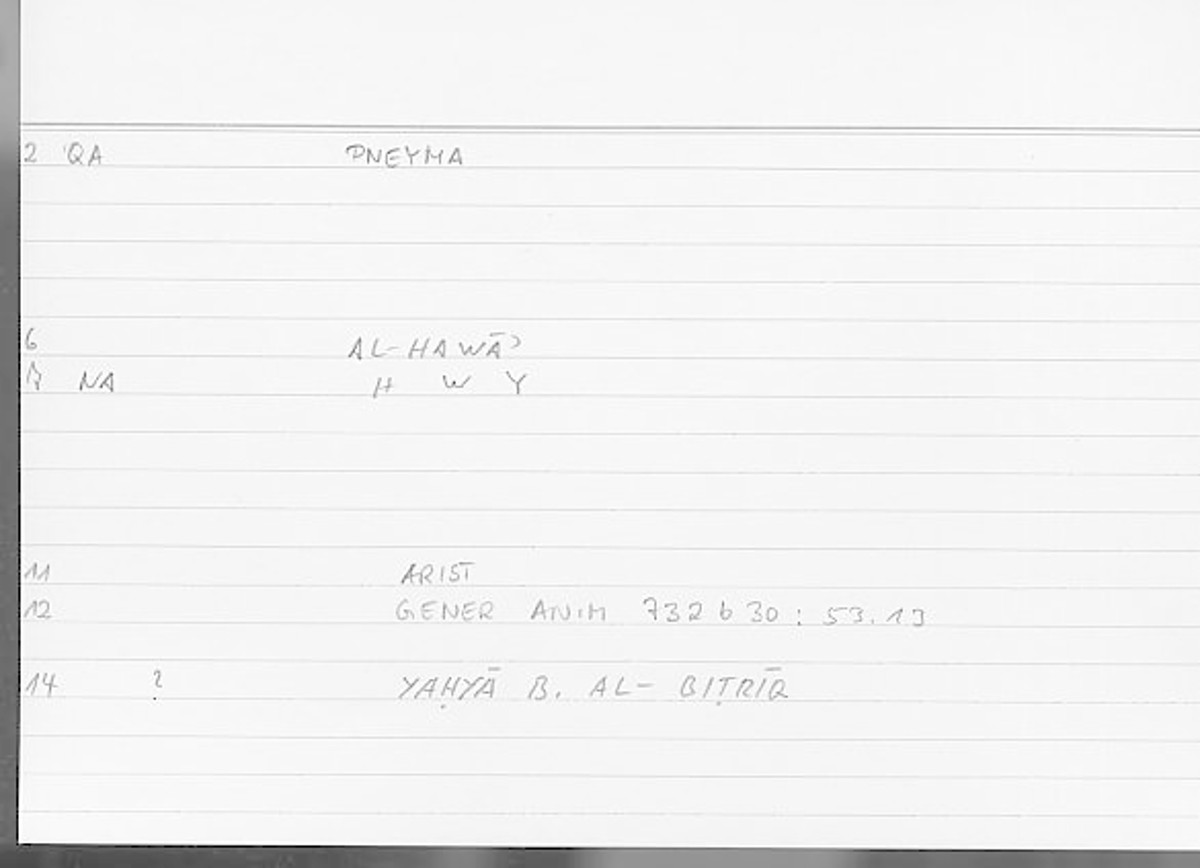 2 QA PNEYMA
6 AL-HAWĀʾ
7 NA H W Y
11 ARIST
12 GENER ANIM 732 b 30 : 53.13
14 ? YAḤYĀ B. AL- BIṬRĪQ